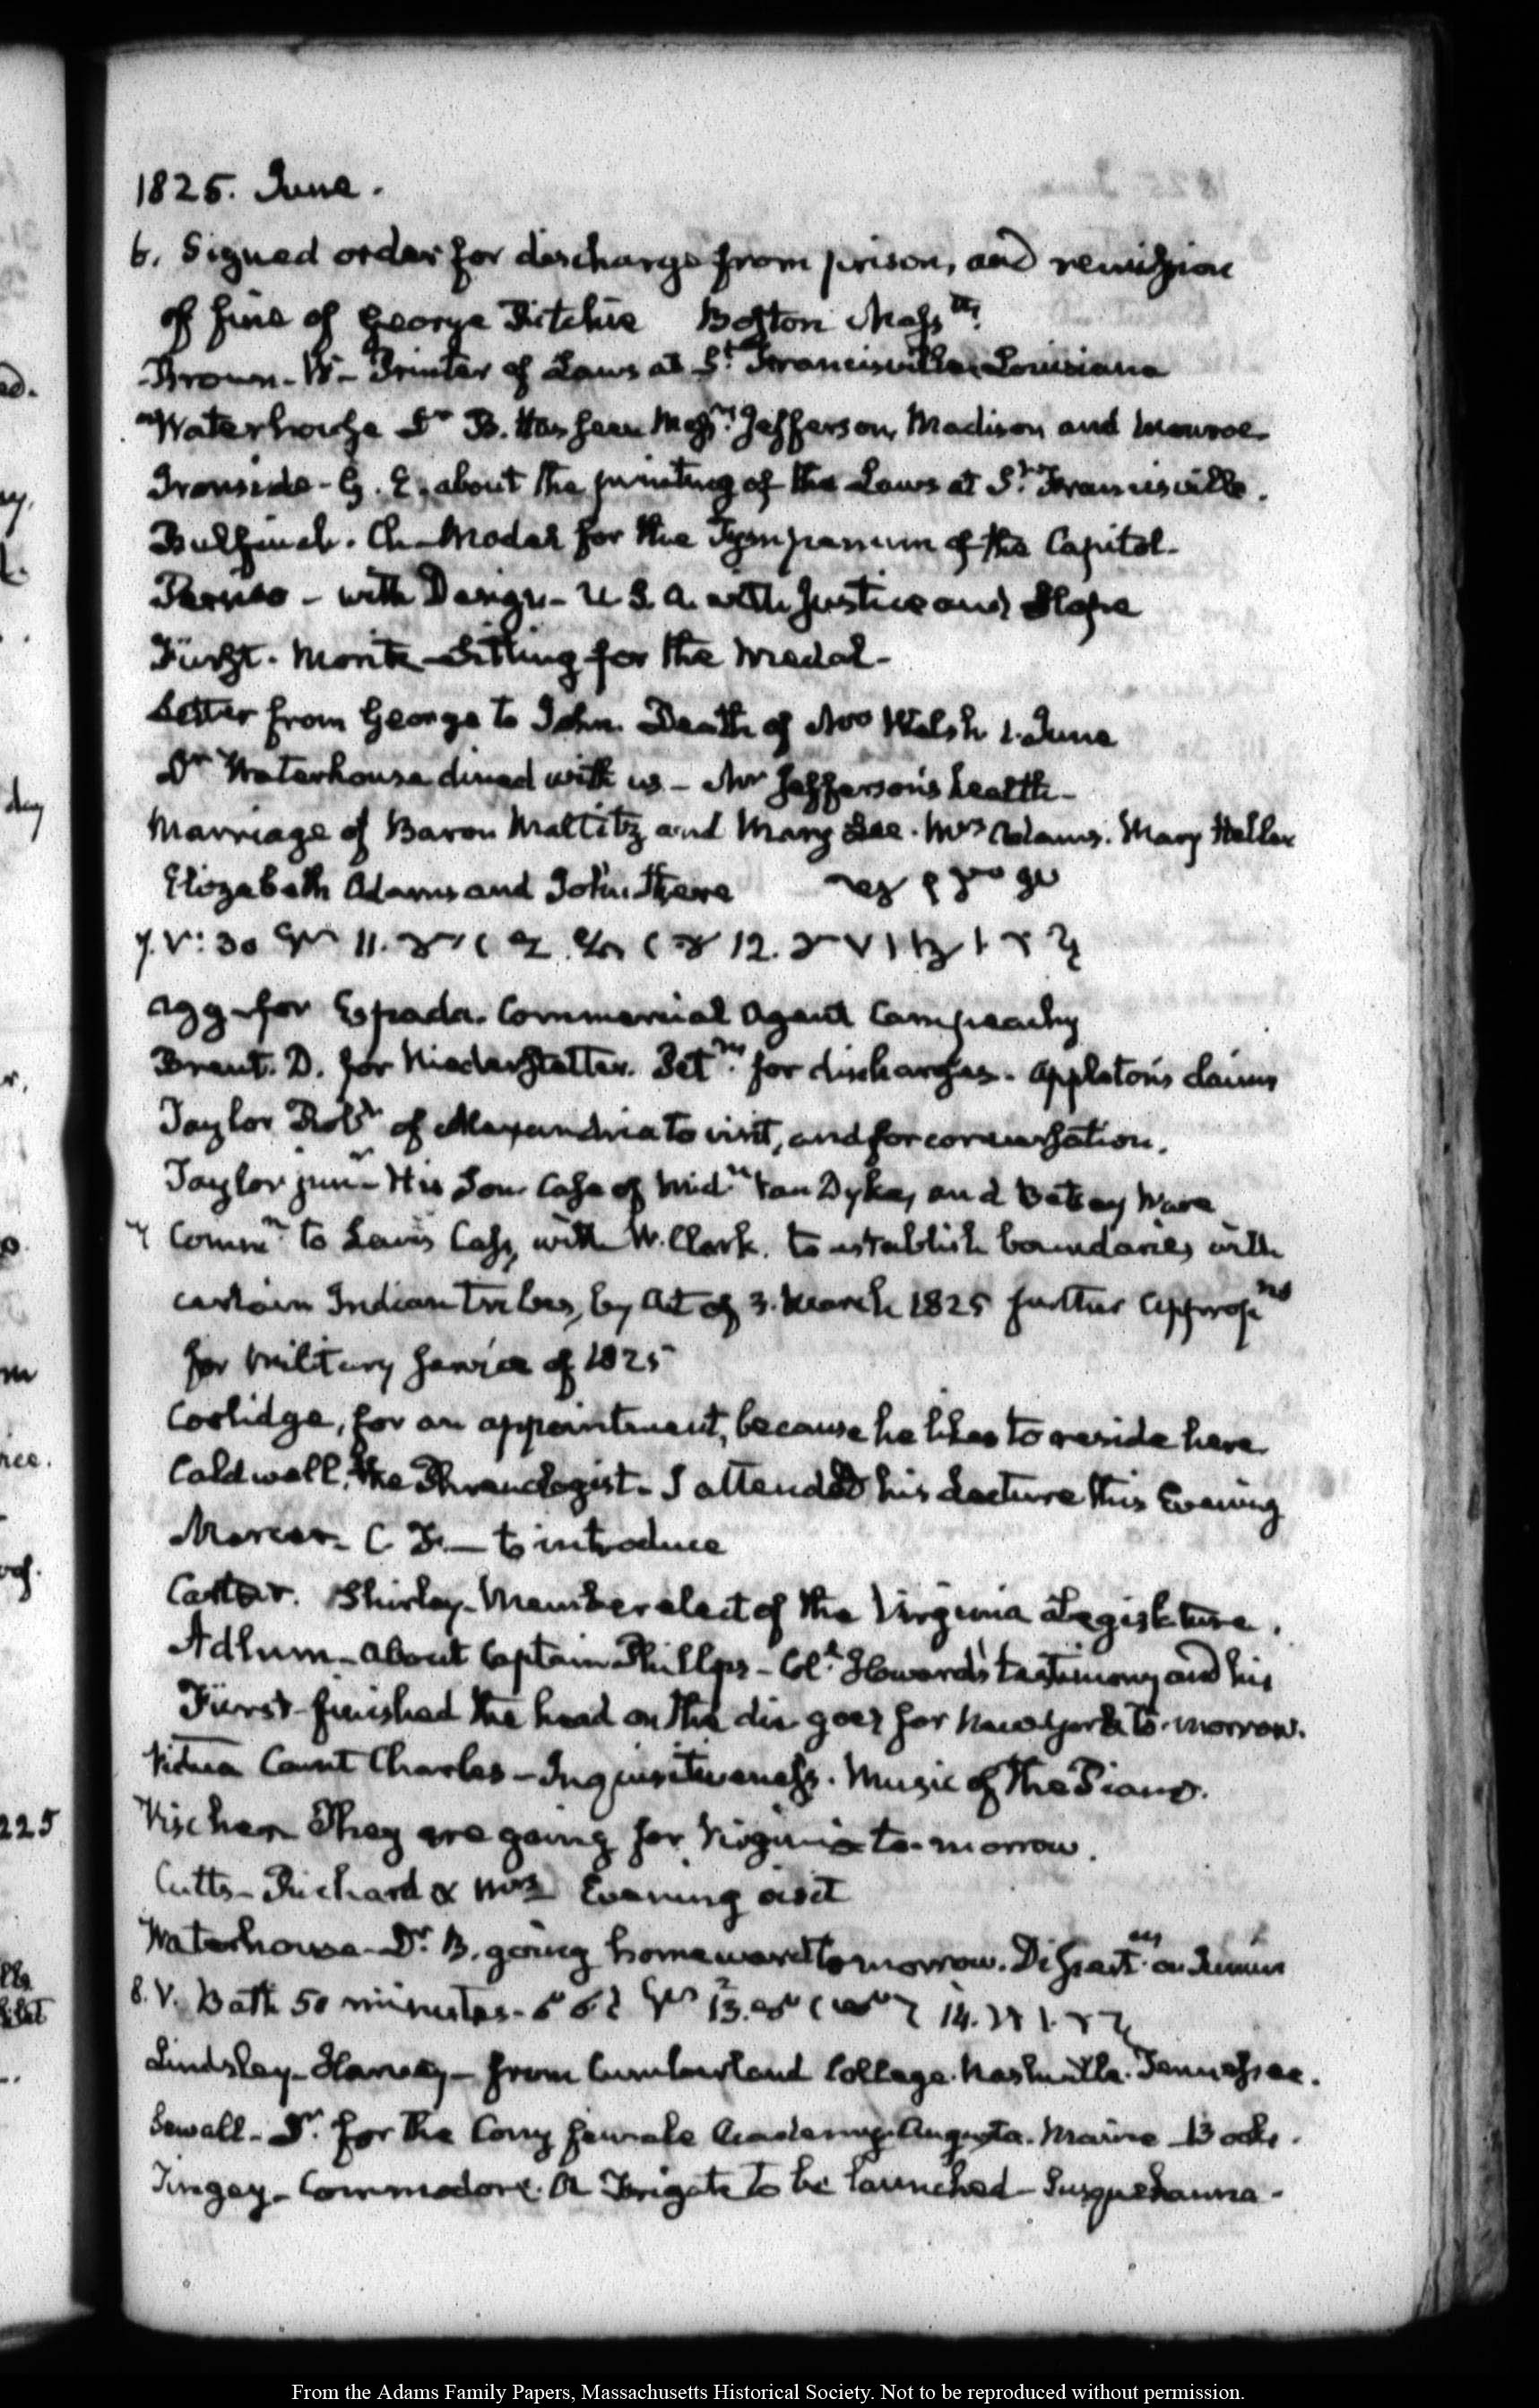 1825. June.
6. Signed order for discharge from prison, and remission
of fine of George Ritchie Boston Mass
Brown - W - Printer of Laws at St. Francisville, Louisiana
Waterhouse Dr B. Has seen Messrs. Jefferson, Madison and Monroe
Ironside - G. E. about the printing of the Laws at St. Francisville.
Bulfinch. Ch - Model for the Tympanum of the Capitol -
Persico - with Design - U S. A. with Justice and Hope
Fürst. Moritz - Sitting for the Medal -
Letter from George to John. Death of Welsh 1. June
Dr Waterhouse dined with us - Mr Jefferson's health -
Marriage of Baron Maltitz and Mary Lee. Mrs Adams. Mary Hellen
Elizabeth Adams and John there
7. V: 30 11. 12.
Agg - for Espada. Commercial Agent Campeachy
Brent. D. for Niederstetter. for discharges. Appleton's claims
Taylor Robt of Alexandria to visit, and for conversation.
Taylor junr - His Son. Case of Midn Van Dyke, and Betsey Ware
Commn to Lewis Cass, with W. Clark. to establish boundaries with
certain Indian tribes, by Act of 3. March 1825 further Approp
for military service of 1825
Coolidge, for an appointment, because he likes to reside here
Caldwell, the Phrenologist - I attended his Lecture this Evening
Mercer - C. F. - to introduce
Carter. Shirley - Member elect of the Virginia Legislature.
Adlum - about Captain Phillips - Coll. Howard's testimony and his
Fürst - finished the head on the die goes for New York to-morrow.
Vidua Count Charles - Inquisitiveness. Music of the Piano.
Vischer They are going for Virginia to-morrow.
Cutts - Richard & Mrs Evening visit
Waterhouse - Dr. B. going homeward tomorrow. on Junius
8. V. Bath 50 minutes - 13. 14.
Lindsley - Harvey - from Cumberland College. Nashville. Tennessee.
Sewall - Dr. for the Cony female Academy. Augusta. Maine - Books.
Tingey - Commodore. A Frigate to be launched - Susquehanna -
ed.
day
225
From the Adams Family Papers, Massachusetts Historical Society. Not to be reproduced without permission.